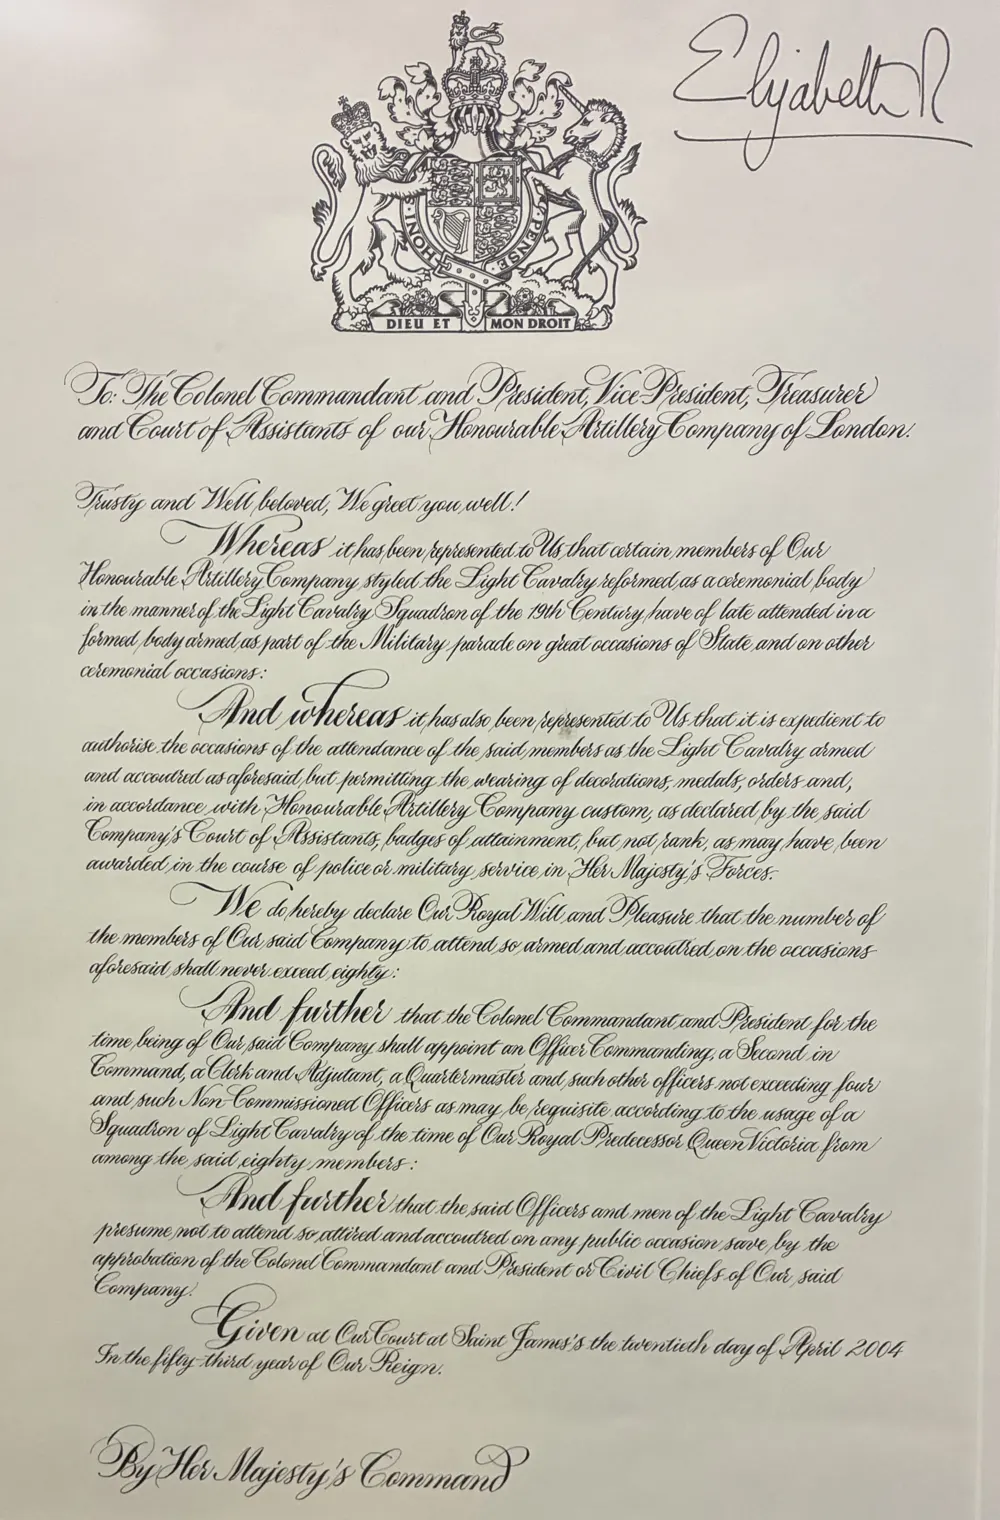 Elizabeth R
HONI
PENSE
DIEU ET MON DROIT
To: The Colonel Commandant and President, Vice President, Treasurer
and Court of Assistants of our Honourable Artillery Company of London.
Trusty and Well beloved, We greet you well!
Whereas it has been represented to Us that certain members of Our
Honourable Artillery Company styled the Light Cavalry reformed as a ceremonial body
in the manner of the Light Cavalry Squadron of the 19th Century have of late attended in a
formed body armed as part of the Military parade on great occasions of State and on other
ceremonial occasions:
And whereas it has also been represented to Us that it is expedient to
authorise the occasions of the attendance of the said members as the Light Cavalry armed
and accoutred as aforesaid but permitting the wearing of decorations, medals, orders and,
in accordance with Honourable Artillery Company custom, as declared by the said
Company's Court of Assistants, badges of attainment, but not rank, as may have been
awarded in the course of police or military service in Her Majesty's Forces.
We do hereby declare Our Royal Will and Pleasure that the number of
the members of Our said Company to attend so armed and accoutred on the occasions
aforesaid shall never exceed eighty:
And further that the Colonel Commandant and President for the
time being of Our said Company shall appoint an Officer Commanding, a Second in
Command, a Clerk and Adjutant, a Quartermaster and such other officers not exceeding four
and such Non-Commissioned Officers as may be requisite according to the usage of a
Squadron of Light Cavalry of the time of Our Royal Predecessor Queen Victoria from
among the said eighty members:
And further that the said Officers and men of the Light Cavalry
presume not to attend so attired and accoutred on any public occasion save by the
approbation of the Colonel Commandant and President or Civil Chiefs of Our said
Company.
Given at Our Court at Saint James's the twentieth day of April 2004
In the fifty-third year of Our Reign.
By Her Majesty's Command